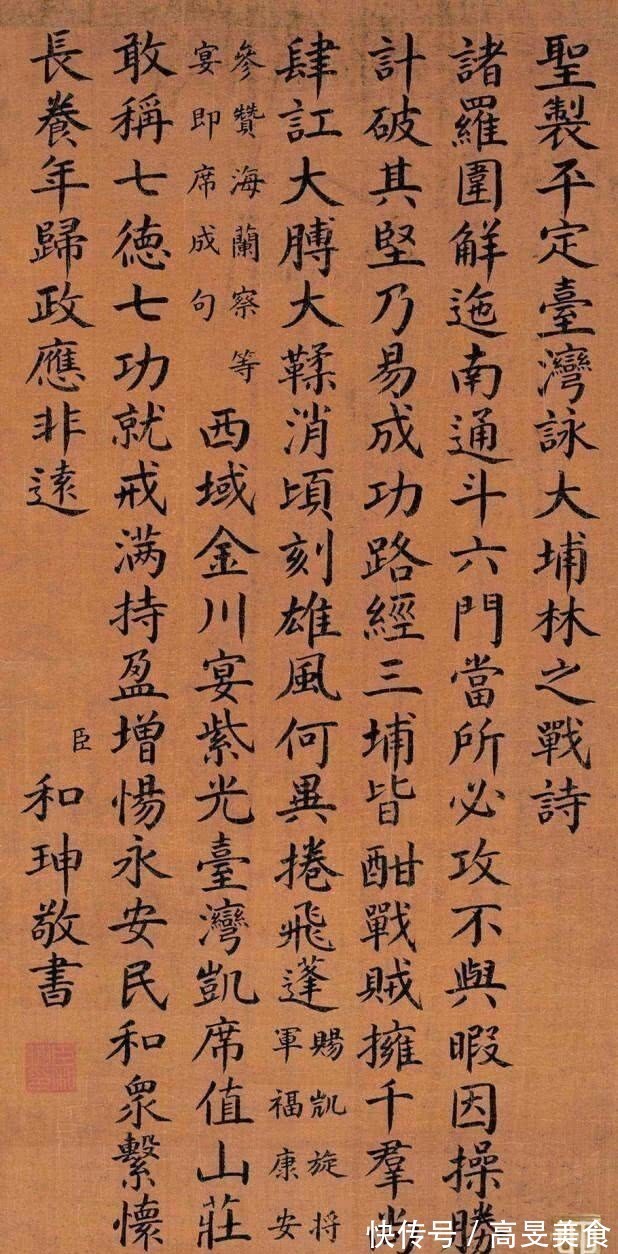 聖製平定臺灣詠大埔林之戰詩
諸羅圍解迤南通斗六門當所必攻不與暇因操勝
計破其堅乃易成功路經三埔皆酣戰賊擁千羣
肆訌大膊大鞣消頃刻雄風何異捲飛蓬
賜凱旋将
軍福康安
參贊海蘭察等
宴即席成句
西域金川宴紫光臺灣凱席值山莊
敢稱七徳七功就戒满持盈增惕永安民和衆繫懷
長養年歸政應非遠
臣和珅敬書
快传号 / 高旻美食